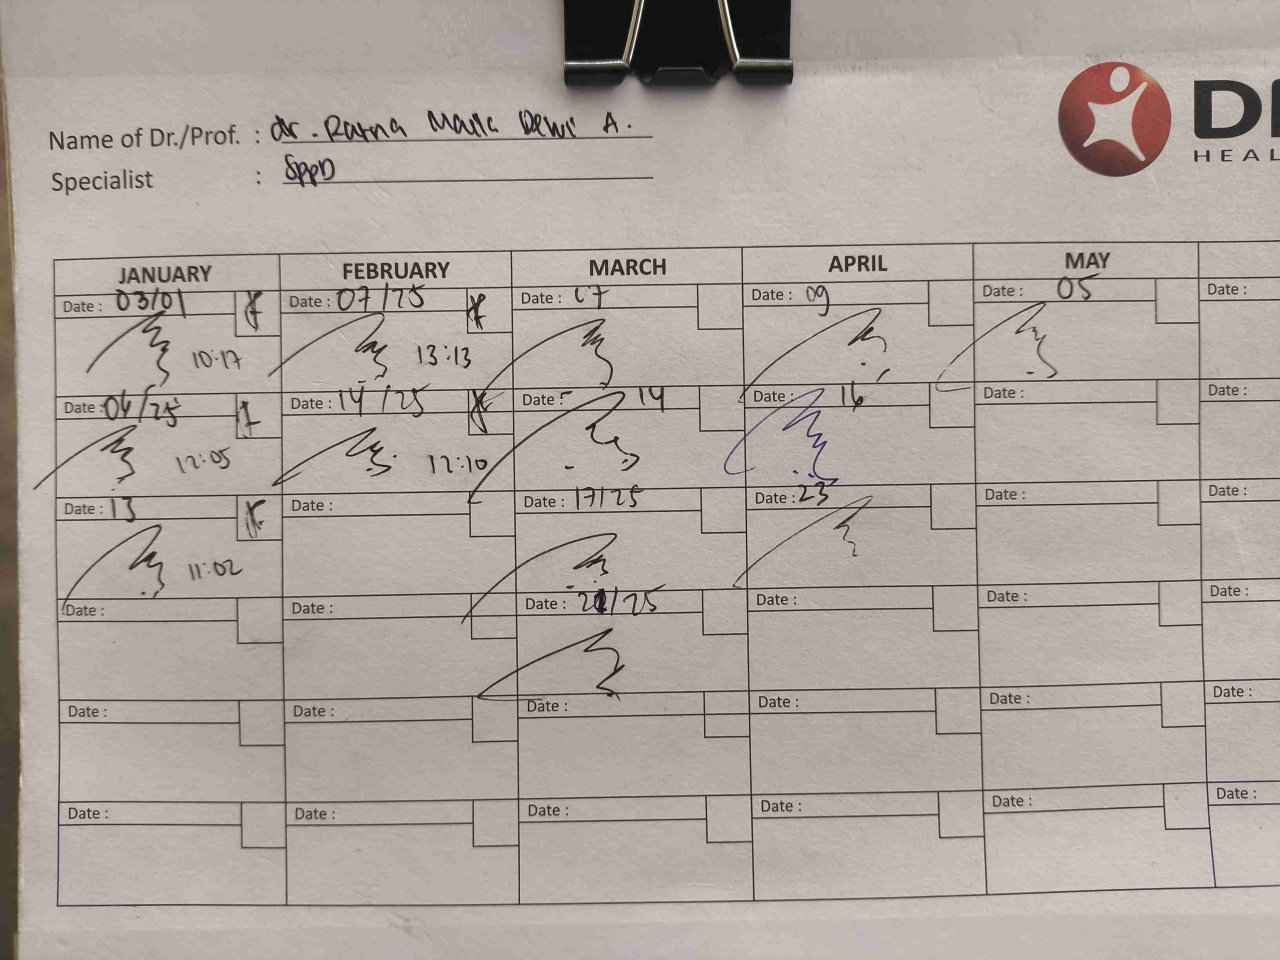 Name of Dr./Prof. : dr. Ratna Maila Dewi A.
Specialist : SppD
HEAL
JANUARY FEBRUARY MARCH APRIL MAY
Date : 03/01 Date : 07/25 Date : 07 Date : 09 Date : 05 Date :
10:17 13:13
Date : /25 Date : 14/25 Date : 14 Date : 16 Date : Date :
12:05 12:10
Date : 13 Date : Date : 17/25 Date : 23 Date : Date :
11:02
Date : Date : Date : 21/25 Date : Date : Date :
Date : Date : Date : Date : Date : Date :
Date : Date : Date : Date : Date : Date :